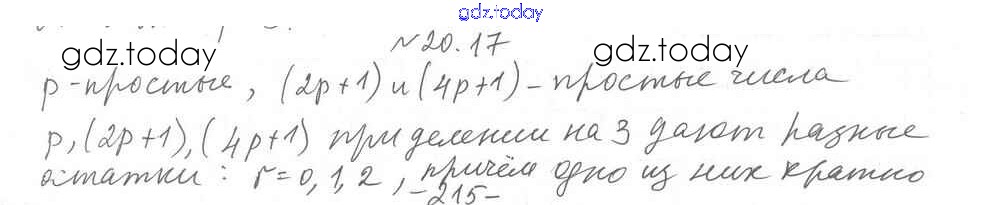 gdz.today
№20.17
gdz.today gdz.today
p-простые, (2p+1) и (4p+1) - простые числа
p, (2p+1), (4p+1) при делении на 3 дают разные
остатки: r=0, 1, 2, причём одно из них кратно
-215-